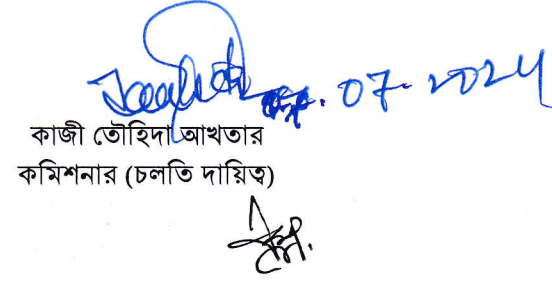 07-2024
কাজী তৌহিদা আখতার
কমিশনার (চলতি দায়িত্ব)